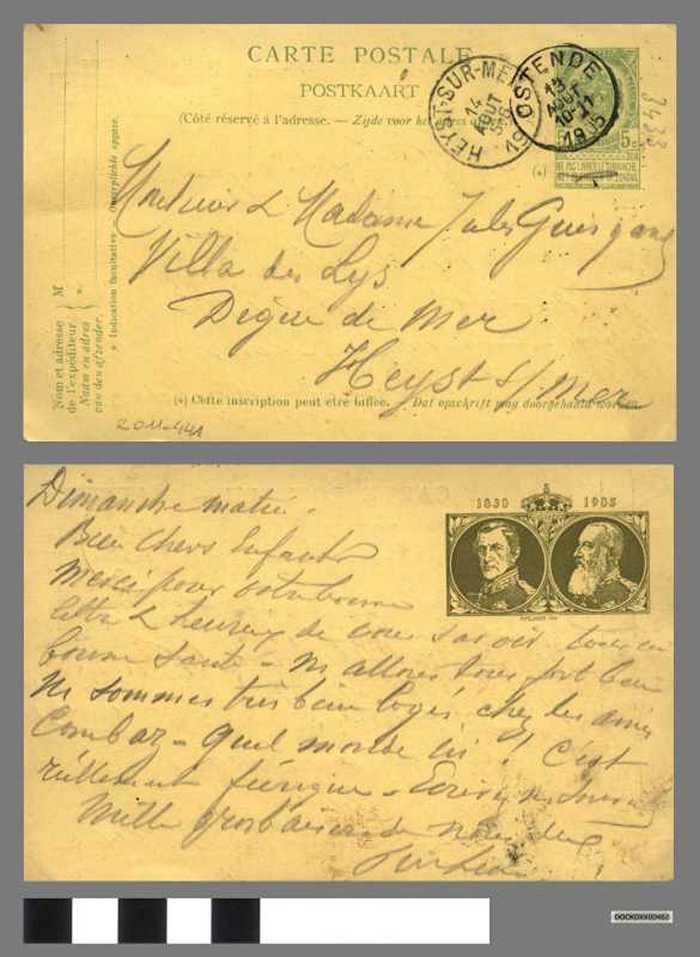 CARTE POSTALE
POSTKAART
(Côté réservé à l'adresse. — Zijde voor het adres
HEYST-SUR-MER
14
AOUT
OSTENDE
13
AOUT
10-11
1905
5c 5c
3433
(*)
Monsieur & Madame Jules
Villa des Lys
Digue de Mer
Heyst s/ Mer
(*) Cette inscription peut être biffée. Dat opschrift mag doorgehaald worden.
Nom et adresse
de l'expéditeur
Naam en adres
van den afzender.
M *
* Indication facultative. Onverplichte opgave.
2011-441
Dimanche matin.
Bien Chers Enfants
Merci pour votre bonne
lettre & heureux de vous savoir tous en
bonne santé – ns allons tous fort bien
Ns sommes très bien logés chez les amis
Combaz – Quel monde ici ! C'est
réellement féerique – Ecrivez ns
Mille gros baisers de nous deux
1830 1905
DOCK0XX00462